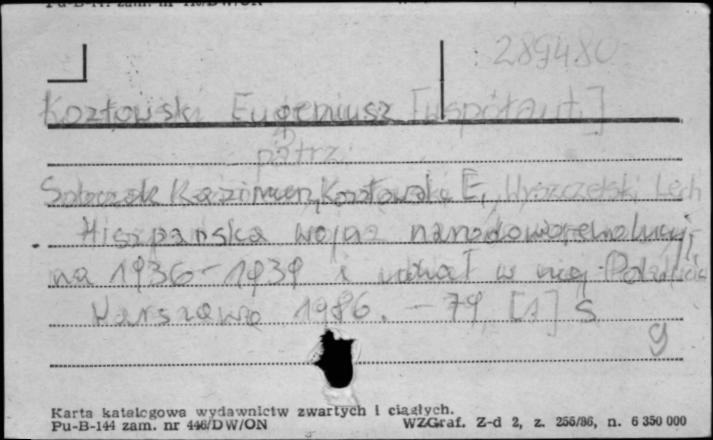 289480
Kozłowski Eugeniusz [współaut.]
patrz
Sobczak Kazimierz, Kozłowski E., Wyszczelski Lech
Hiszpańska wojna narodoworewolucyj-
na 1936-1939 i udział w niej Polaków
Warszawa 1986. - 79, [1] s
g
Karta katalogowa wydawnictw zwartych i ciągłych.
Pu-B-144 zam. nr 446/DW/ON WZGraf. Z-d 2, z. 255/86, n. 6 350 000